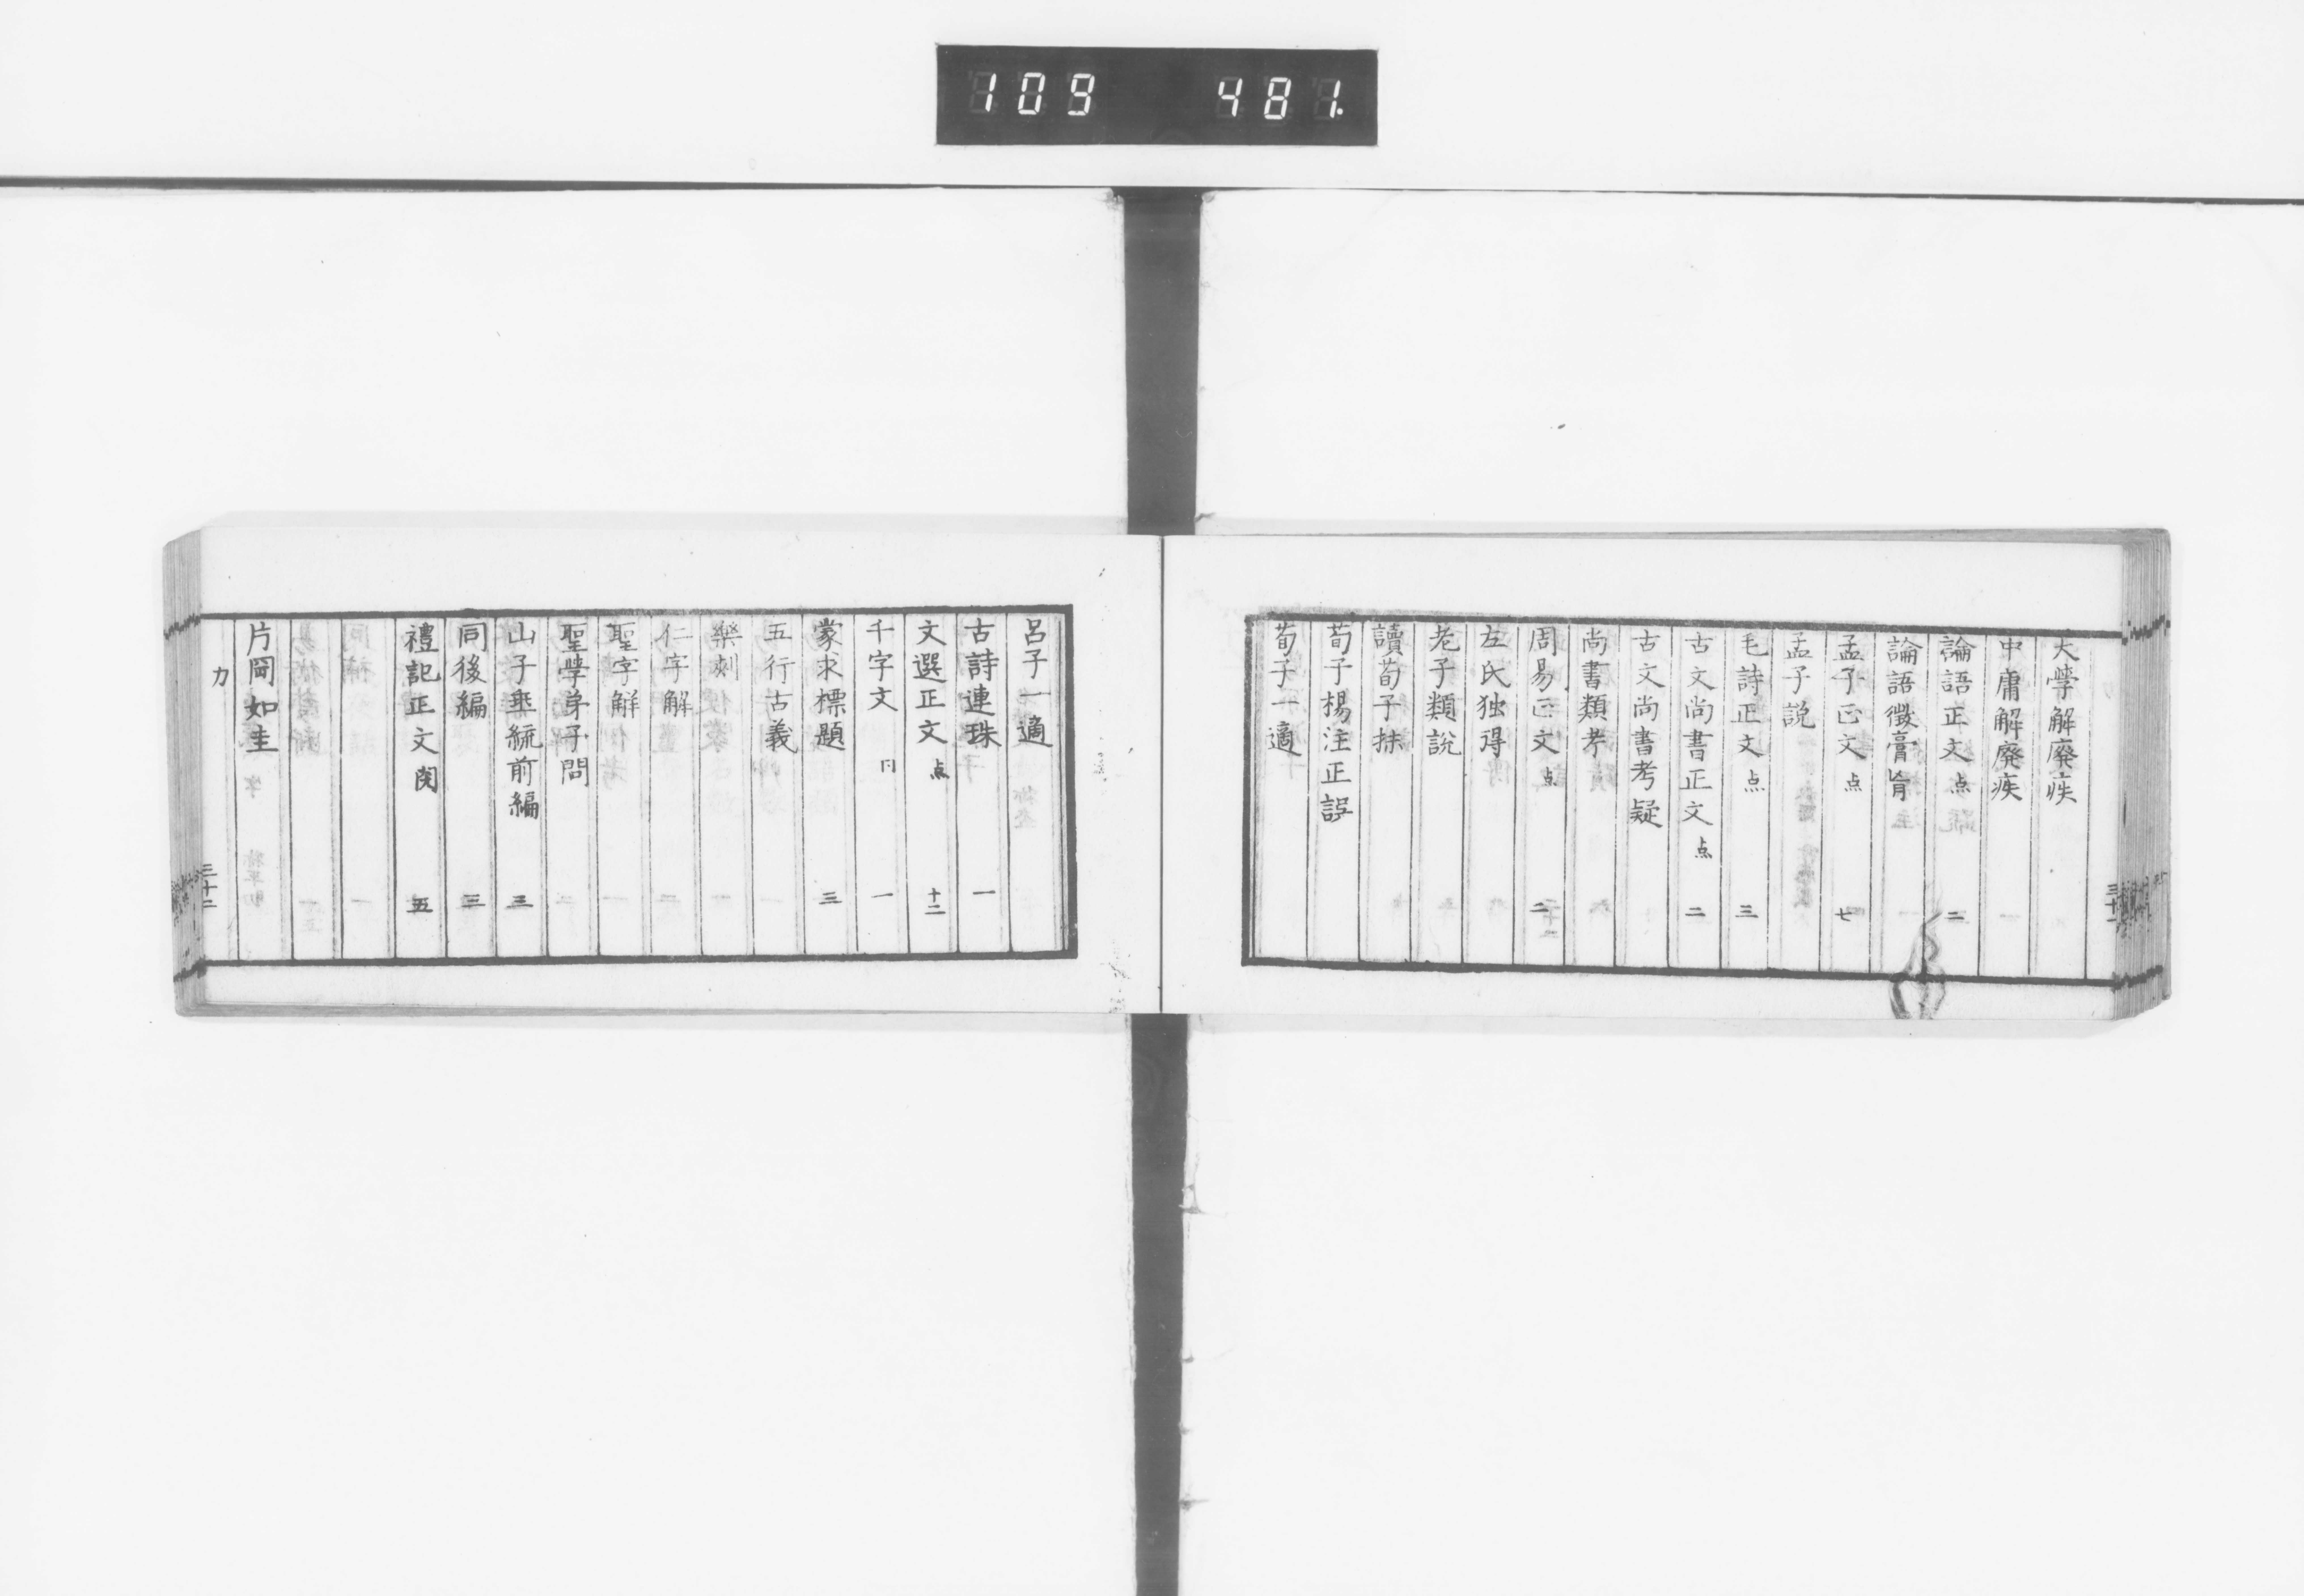 109 481
大學解廢疾
中庸解廢疾
論語正文 点 二
論語徴膏肓
孟子正文 点 七
孟子説
毛詩正文 点 三
古文尚書正文 点 二
古文尚書考疑
尚書類考
周易正文 点 二
左氏独得
老子類説
讀荀子抹
荀子楊注正誤
荀子一適
呂子一適
古詩連珠 一
文選正文 点 十二
千字文 一
蒙求標題 三
五行古義
樂刻
仁字解
聖字解
聖學弟子問
山子垂統前編 三
同後編 三
禮記正文 閲 五
片岡如圭
カ 三十二